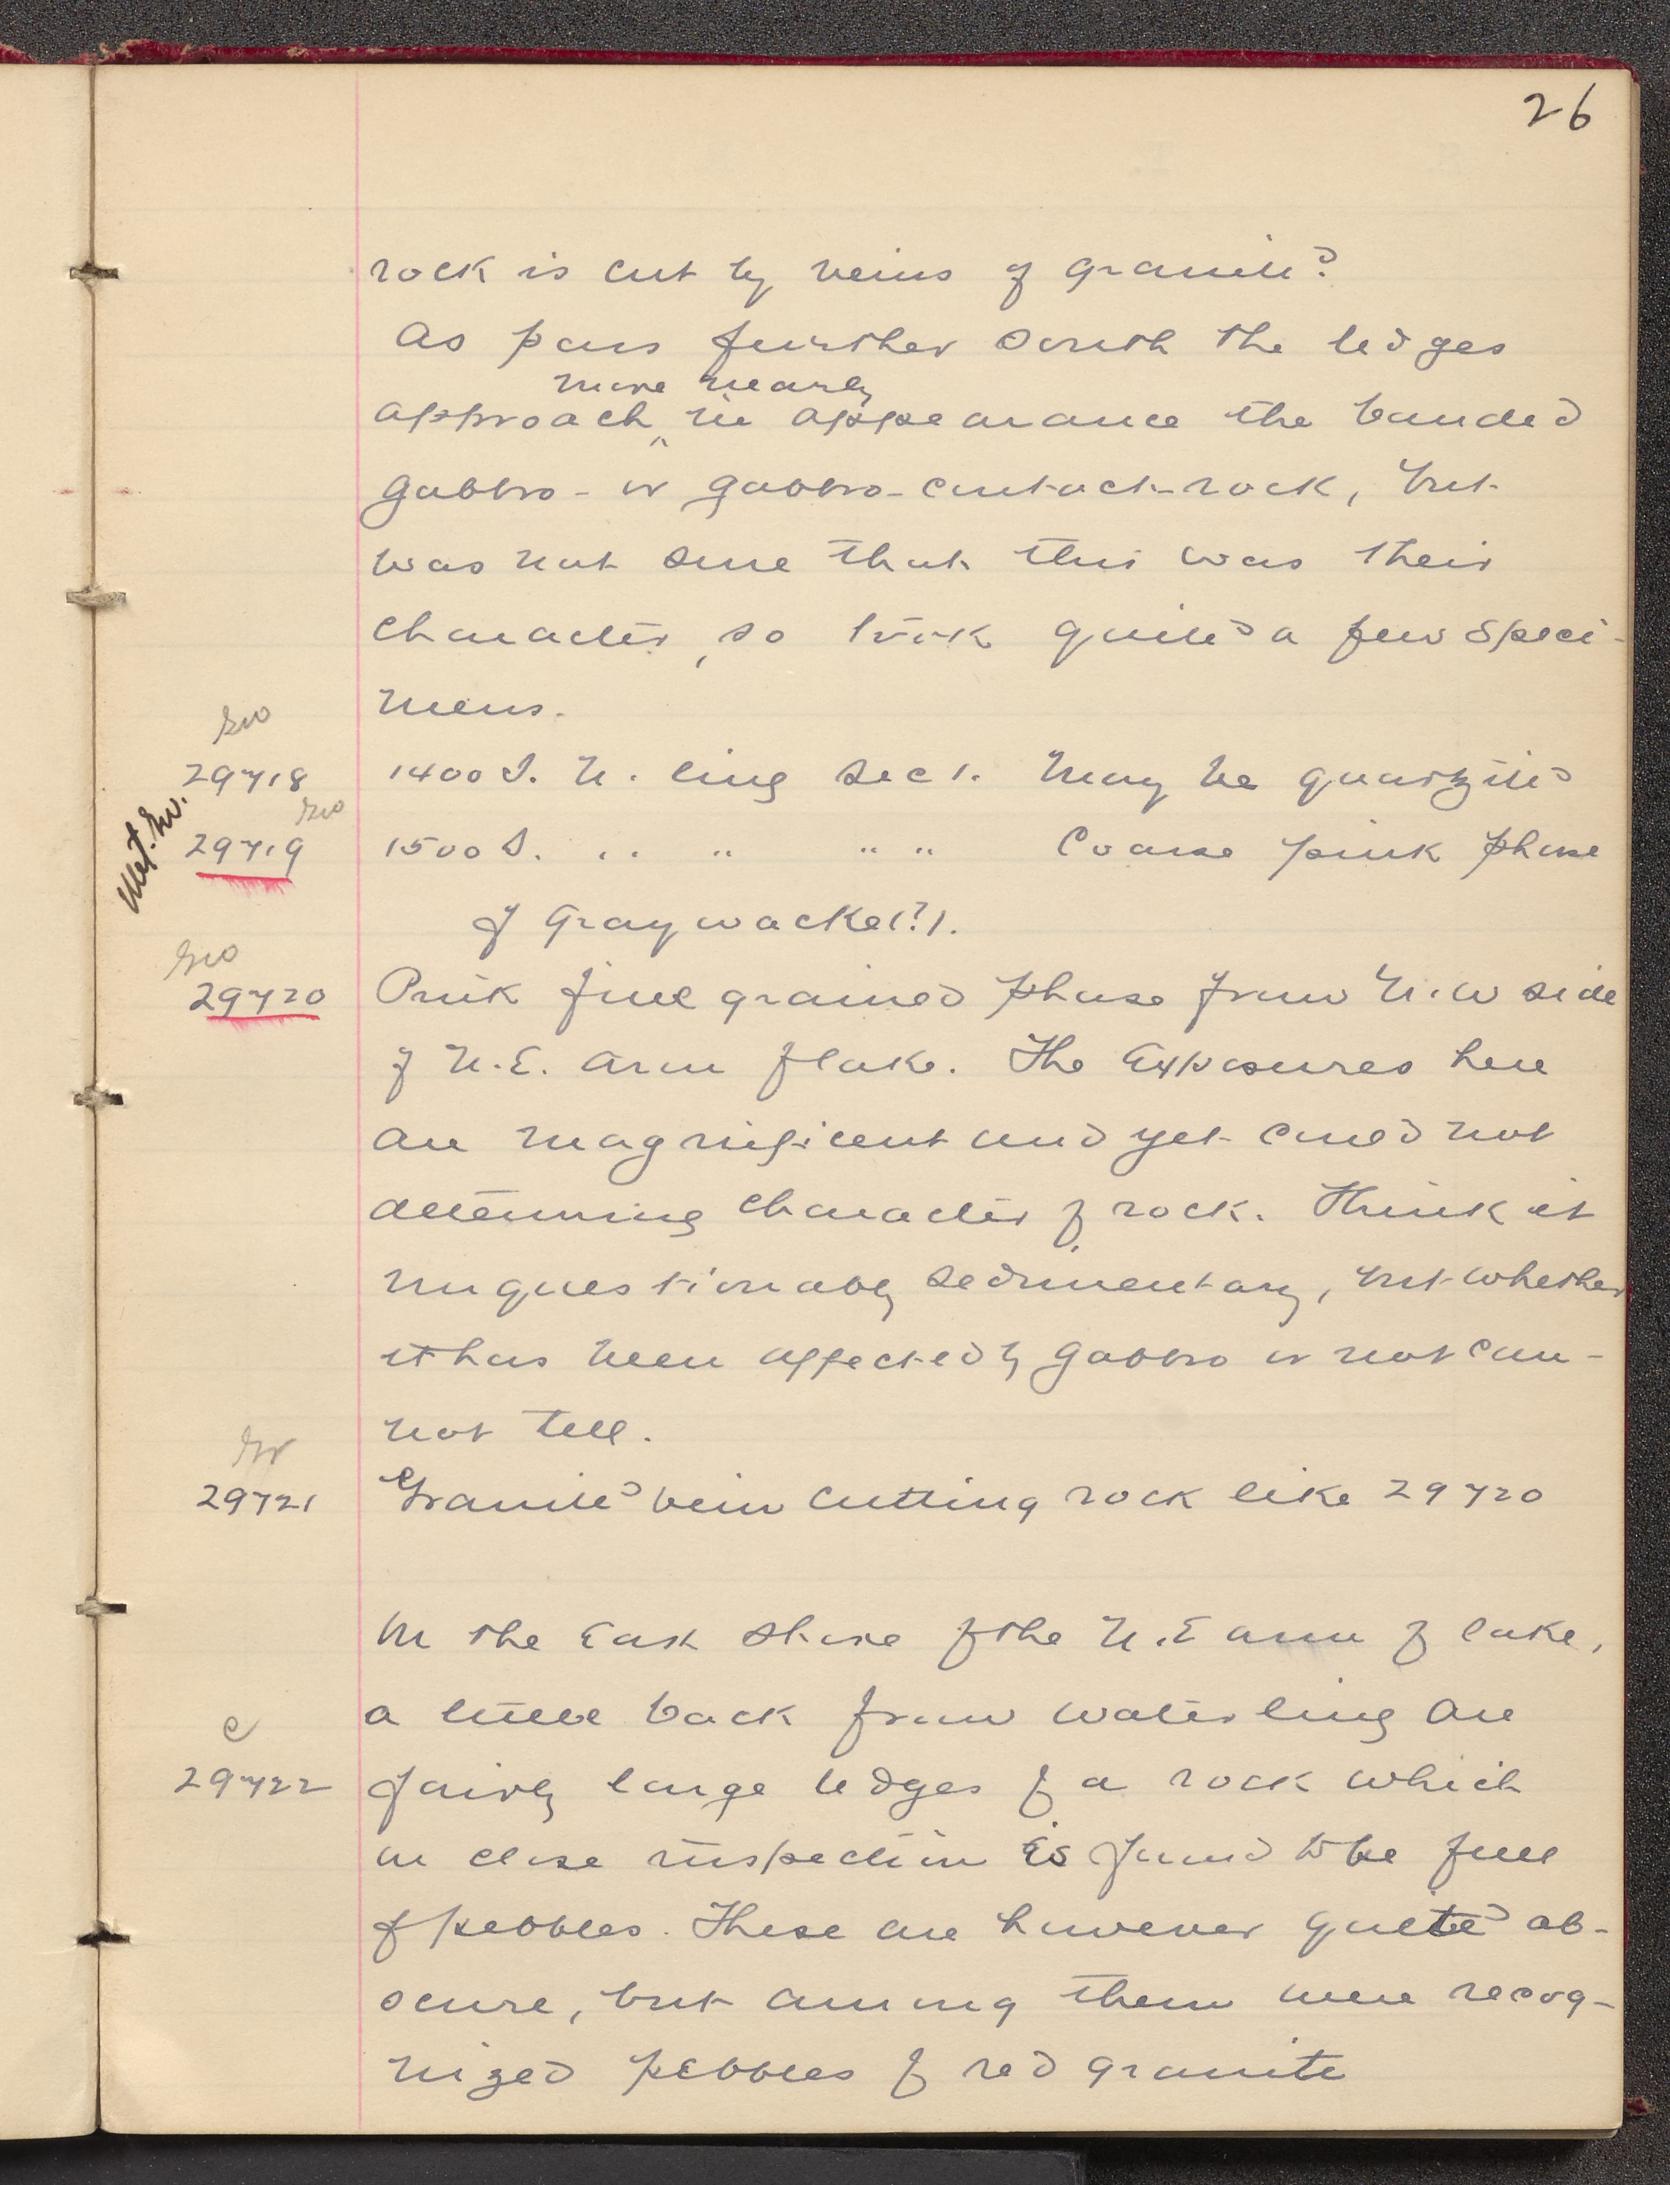 26
rock is cut by veins of granite
As pass further south the ledges
more nearly
approach ^ in appearance the banded
gabbro- or gabbro-contact-rock, but
was not sure that this was their
character, so took quite a few speci-
mens.
29718 1400 S. N. line Sec 1. May be quartzite
29719 1500 S. " " " " Coarse pink phase
of Graywacke (?).
29720 Pink fine grained phase from N.W side
of N.E. arm of lake. The Exposures here
are magnificent and yet could not
determine character of rock. Think it
unquestionably sedimentary, but whether
it has been affected by gabbro or not can-
not tell.
Gr
29721 Granite vein cutting rock like 29720
On the East shore of the N.E arm of lake,
a little back from water line are
C
29722 fairly large ledges of a rock which
on close inspection is found to be full
of pebbles. These are however quite ob-
scure, but among them were recog-
nized pebbles of red granite